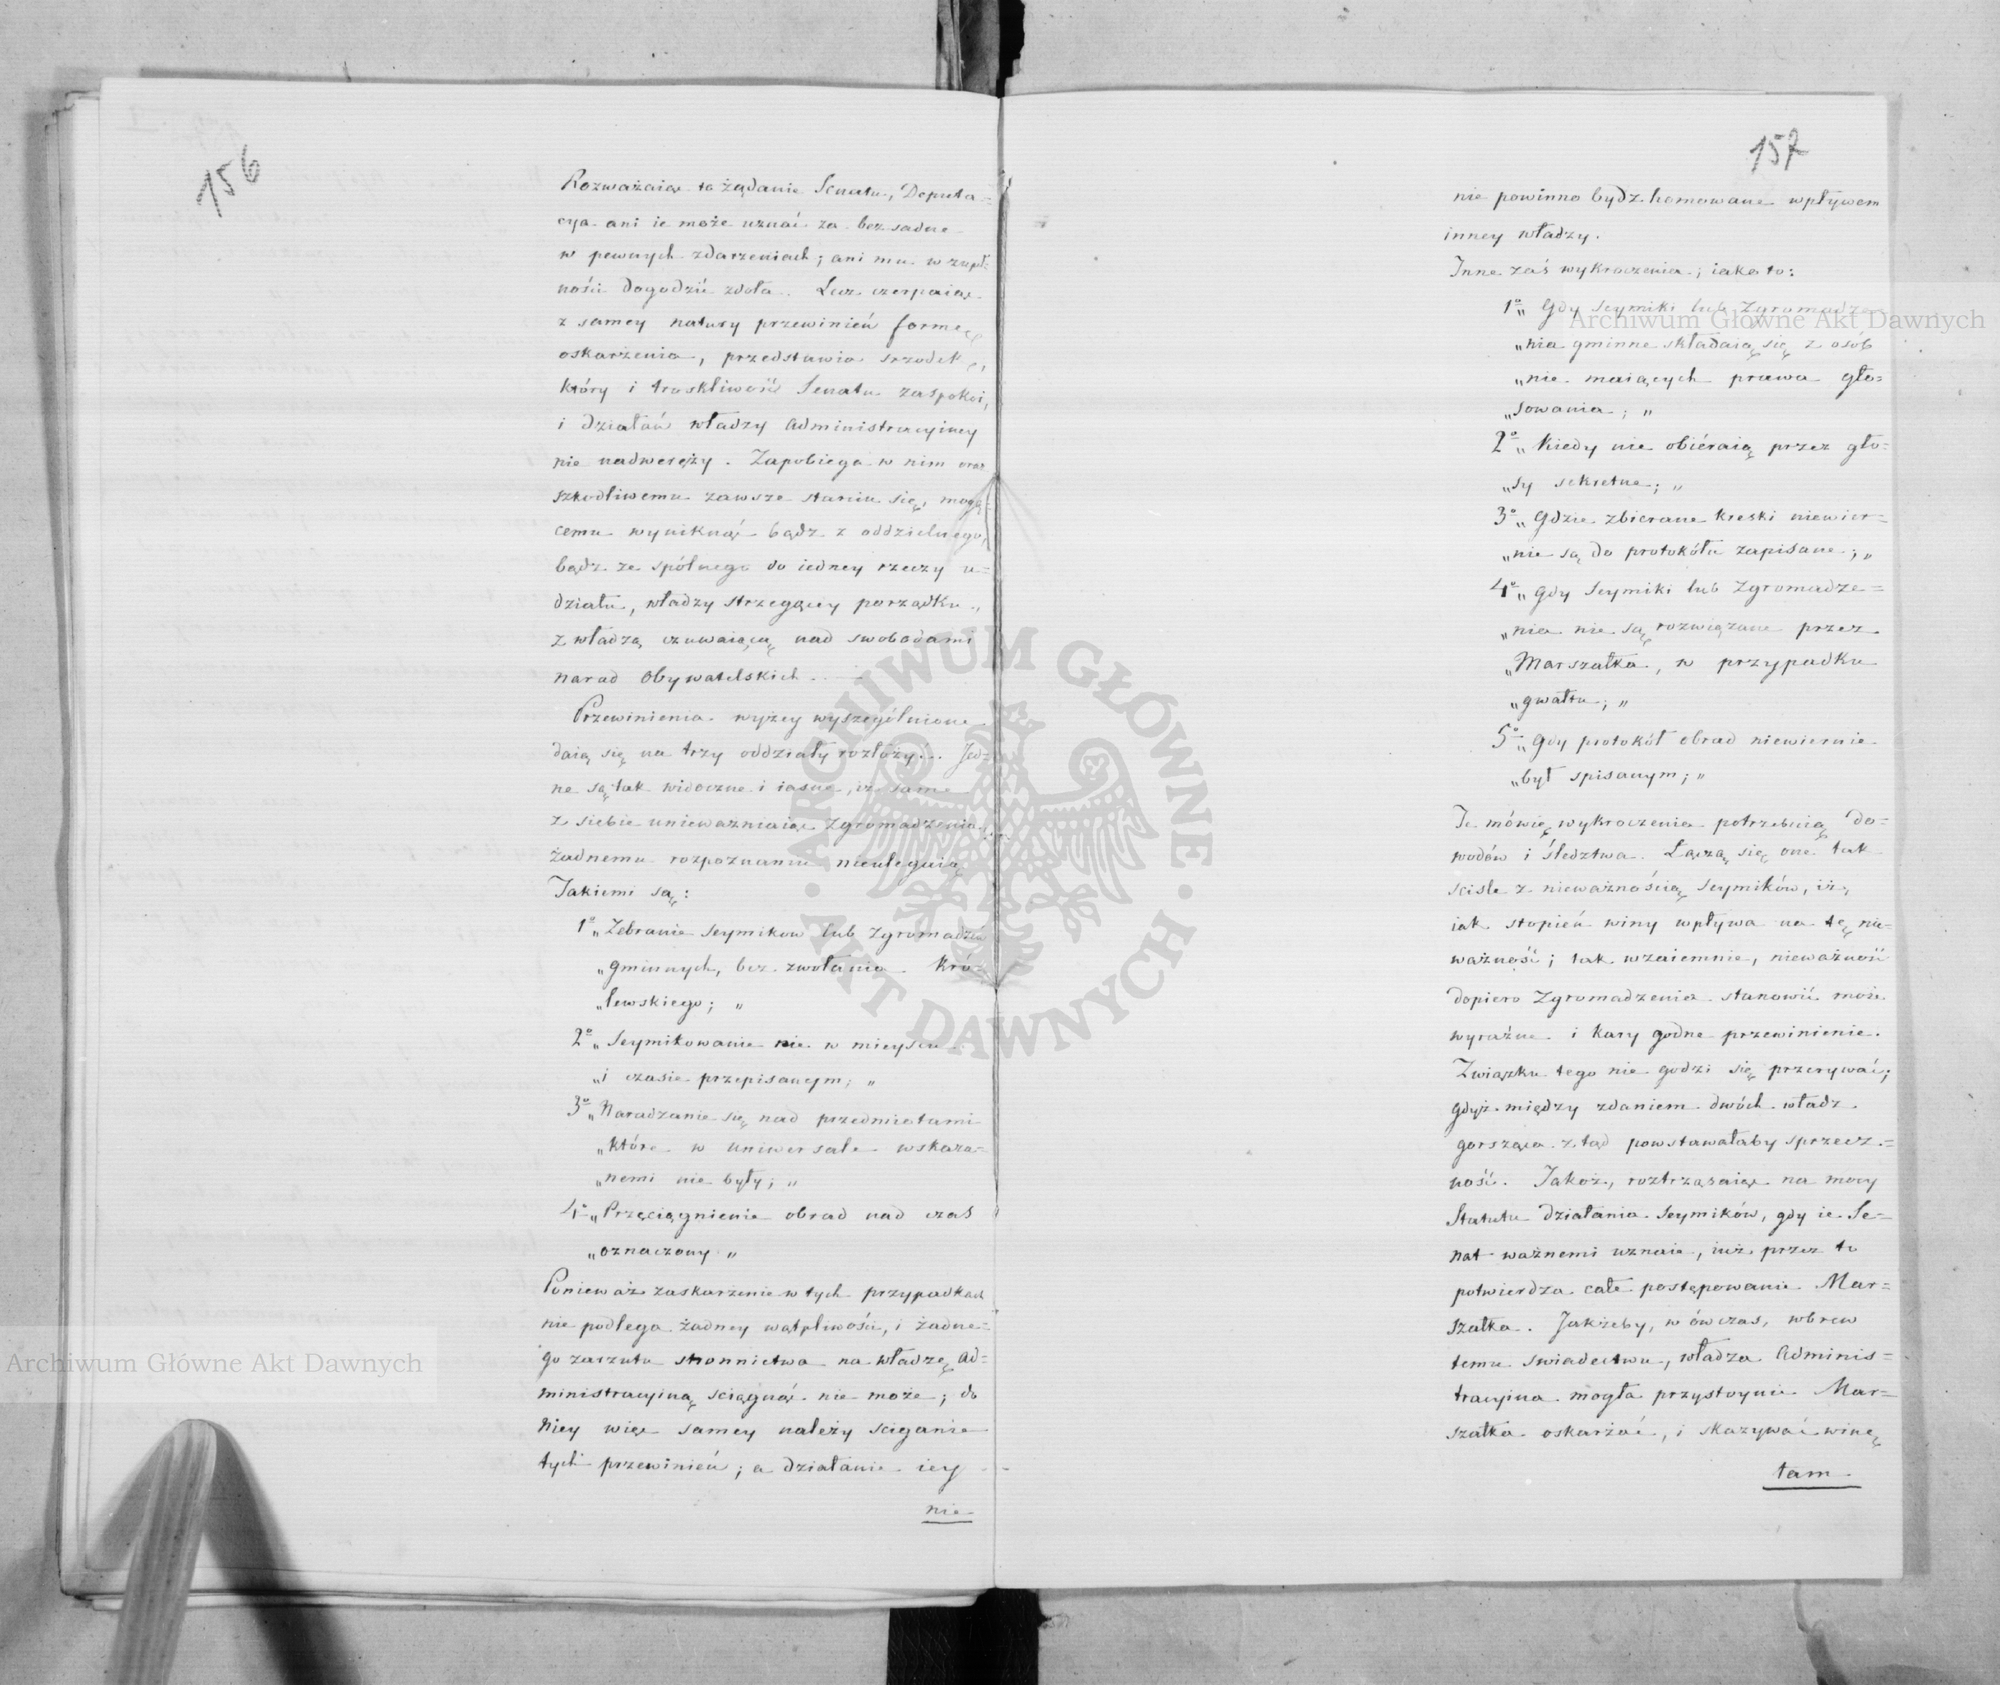 156
Rozważaiąc to żądanie Senatu, Deputa=
cya ani ie może uznać za bezsadne
w pewnych zdarzeniach; ani mu w zupeł=
ności dogodzić zdoła. Lecz czerpaiąc
z samey natury przewinień formę
oskarżenia, przedstawia srzodek,
który i troskliwość Senatu zaspokoi,
i działań władzy Administracyiney
nie nadweręży. Zapobiega w nim oraz
szkodliwemu zawsze starciu się, mogą=
cemu wyniknąć bądz z oddzielnego,
bądz ze spólnego do iedney rzeczy u=
działu, władzy strzegącey porządku,
z władzą czuwaiącą nad swobodami
narad Obywatelskich.
Przewinienia wyżey wyszególnione
daią się na trzy oddziały rozłożyć. Jed=
ne są tak widoczne i iasne, iż same
z siebie unieważniaiąc Zgromadzenia,
żadnemu rozpoznaniu nieulegaią
Takiemi są:
1º „Zebranie Seymikow lub Zgromadzeń
„gminnych, bez zwołania Kró=
„lewskiego; „
2º „Seymikowanie nie w mieyscu
„i czasie przepisanym; „
3º „Naradzanie się nad przedmiotami
„które w uniwersale wskaza=
„nemi nie były; „
4º „Przęciągnienie obrad nad czas
„oznaczony „
Ponieważ zaskarżenie w tych przypadkach
nie podlega żadney wątpliwości, i żadne=
go zarzutu stronnictwa na władzę Ad=
ministracyiną sciągnąć nie może; do
Niey więc samey należy sciganie
tych przewinień; a działanie iey
nie
157
nie powinno bydz hamowane wpływem
inney władzy.
Inne zaś wykroczenia; iako to:
1º „Gdy Seymiki lub Zgromadze=
„nia gminne składaią się z osób
„nie maiących prawa gło=
„sowania; „
2º „Kiedy nie obiéraią przez gło=
„sy sekretne; „
3º „Gdzie zbierane kreski niewier=
„nie są do protokółu zapisane; „
4º „Gdy Seymiki lub Zgromadze=
„nia nie są rozwiązane przez
„Marszałka, w przypadku
„gwałtu; „
5º „Gdy protokół obrad niewiernie
„był spisanym; „
Te mówię wykroczenia potrzebuią do=
wodów i śledztwa. Łączą się one tak
sciśle z nieważnością Seymików, iż,
iak stopień winy wpływa na tę nie=
ważność; tak wzaiemnie, nieważność
dopiero Zgromadzenia stanowić może
wyraźne i kary godne przewinienie.
Związku tego nie godzi się przerywać;
gdyż między zdaniem dwóch władz
gorsząca ztąd powstawałaby sprzecz=
ność. Jakoż, roztrząsaiąc na mocy
Statutu działania Seymików, gdy ie Se=
nat ważnemi uznaie, iuż przez to
potwierdza całe postępowanie Mar=
szałka. Jakżeby, wówczas, wbrew
temu swiadectwu, władza Adminis=
tracyina mogła przystoynie Mar=
szałka oskarżać, i skazywać winę
tam
Archiwum Główne Akt Dawnych
Archiwum Główne Akt Dawnych
ARCHIWUM GŁÓWNE
AKT DAWNYCH